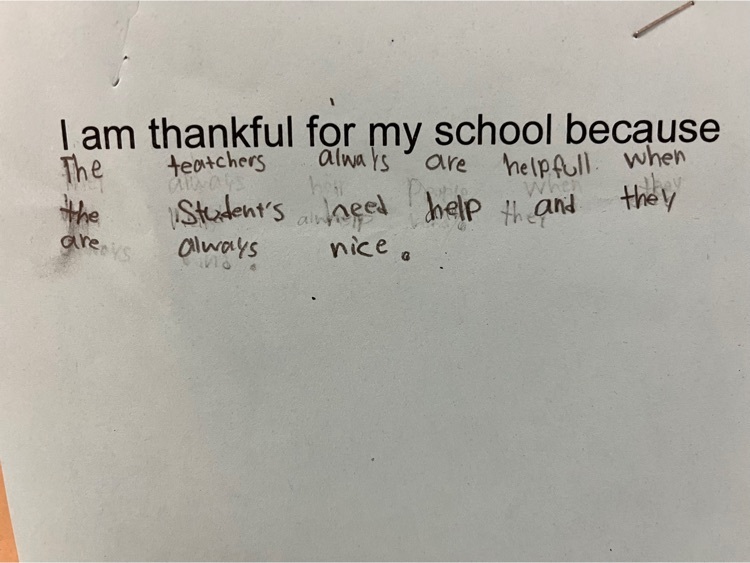 I am thankful for my school because
The teatchers always are helpfull when
the Student's need help and they
are always nice.